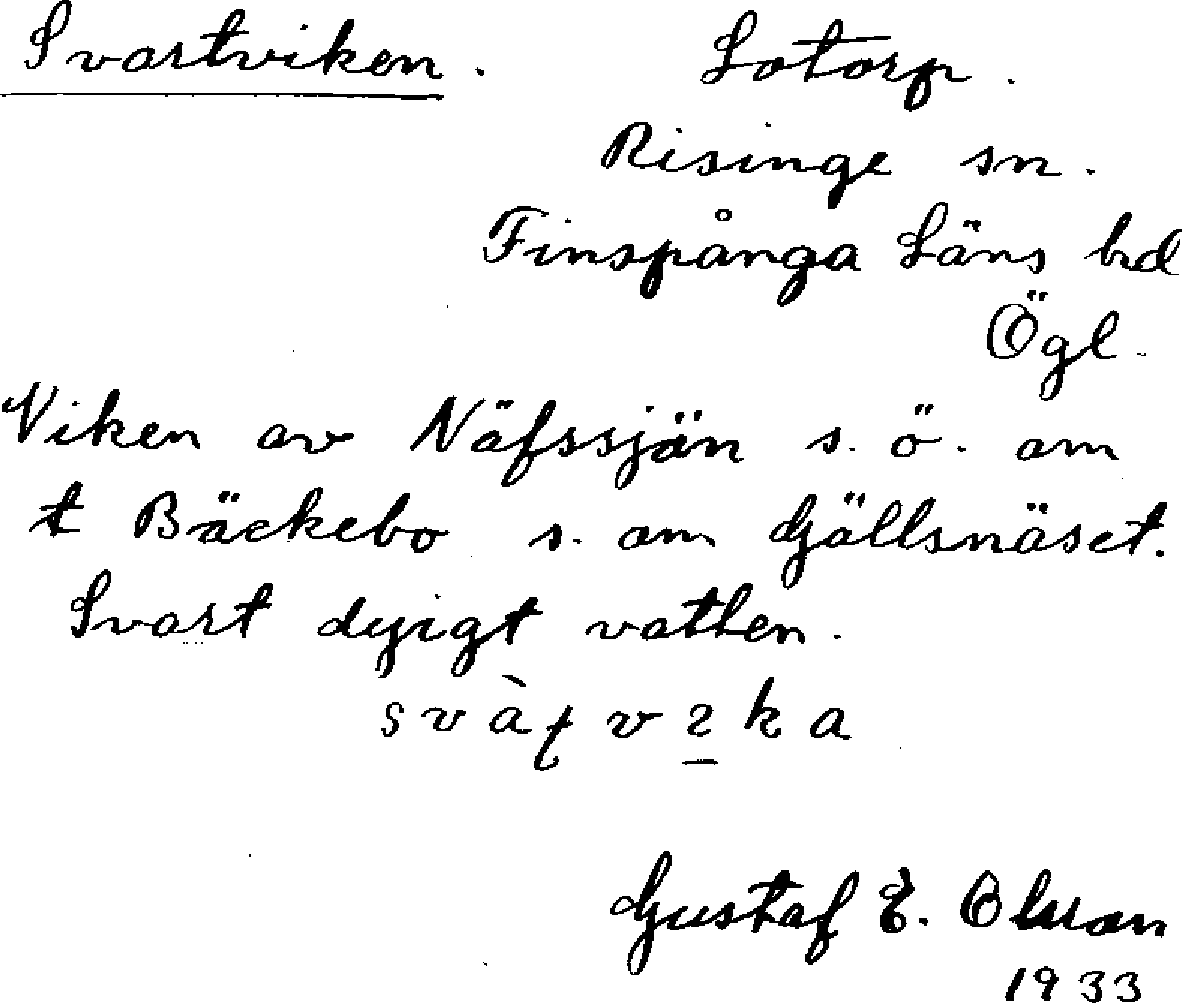 Svartviken. Lotorp.
Risinge sn.
Finspånga Läns hd
Ögl.
Viken av Näfssjön s.ö. om
t Bäckebo s. om Gjällsnäset.
Svart dyigt vatten.
Gustaf E. Olsson
1933